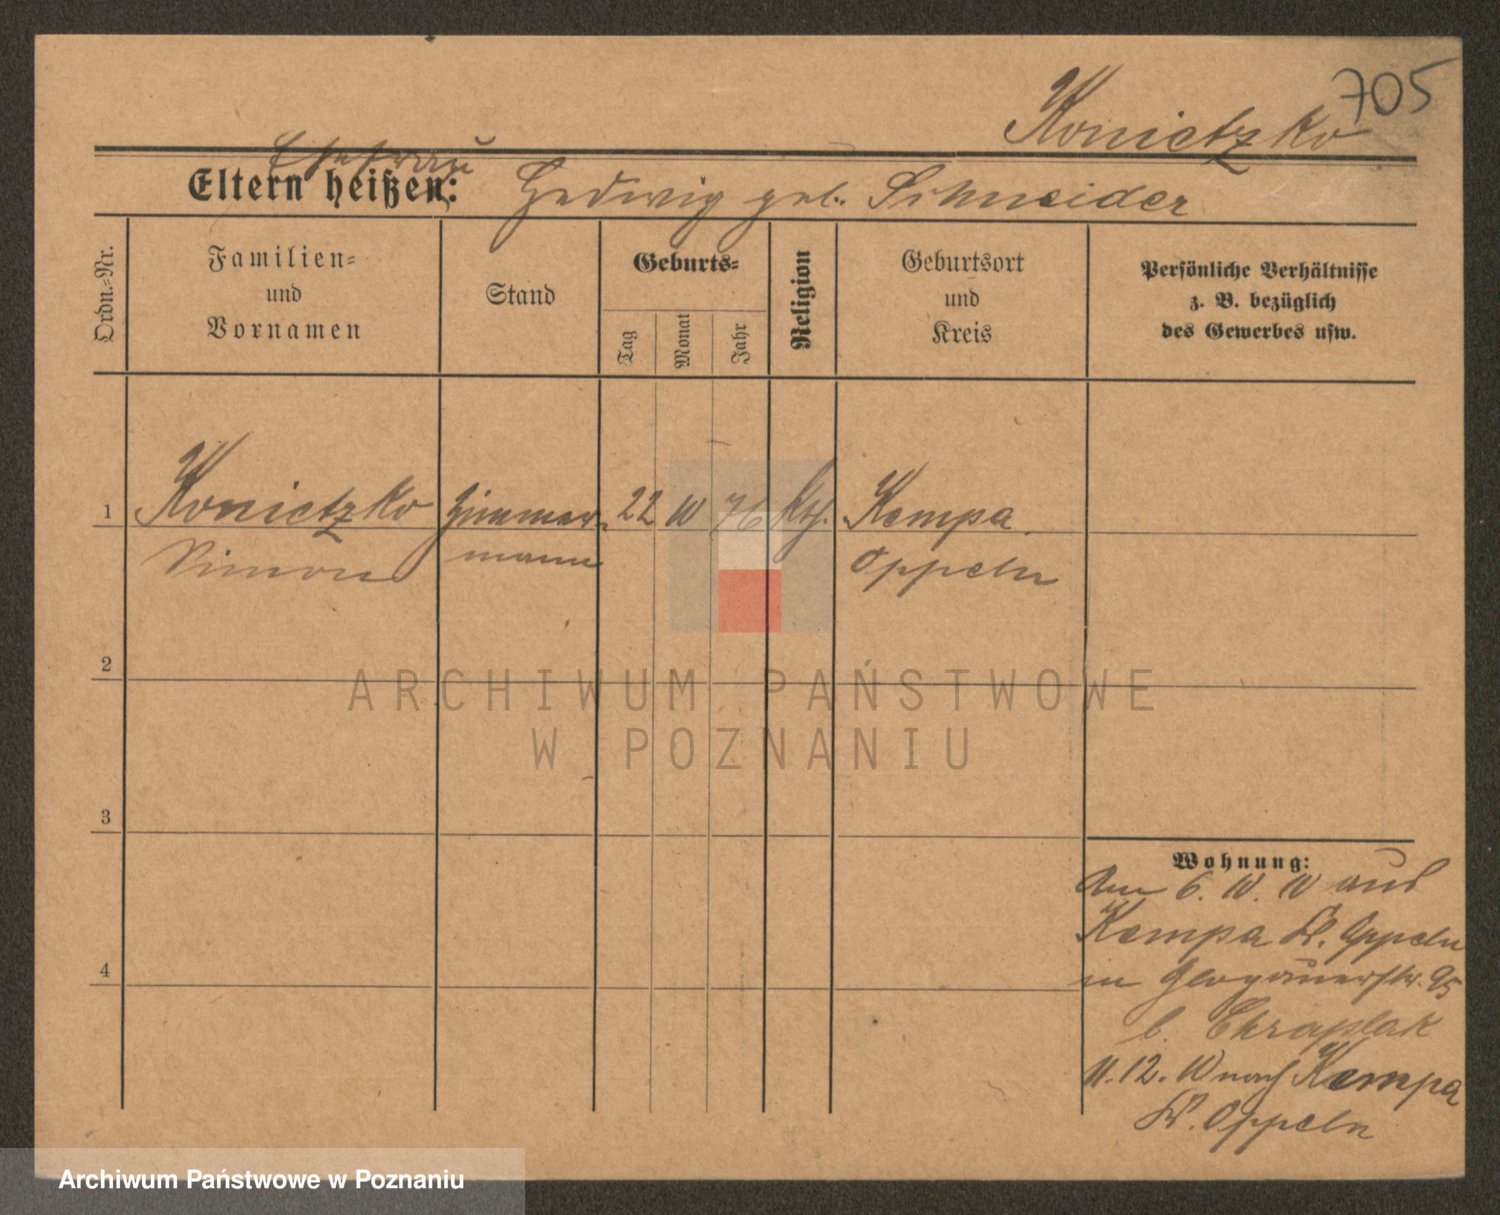 705
Konietzko
Ehefrau
Eltern heißen: Hedwig geb. Schneider
Ordn.-Nr.
Familien-
und
Vornamen
Stand
Geburts-
Tag
Monat
Jahr
Religion
Geburtsort
und
Kreis
Persönliche Verhältnisse
z. B. bezüglich
des Gewerbes usw.
1 Konietzko Zimmer- 22 10 76 kth. Kempa
Simon mann Oppeln
2
ARCHIWUM PAŃSTWOWE
W POZNANIU
3
4
Wohnung:
Am 6. 10. 10 aus
Kempa Kr. Oppeln
in Glogauerstr. 95
b. Chraplak
11. 12. 10 nach Kempa
Kr. Oppeln
Archiwum Państwowe w Poznaniu